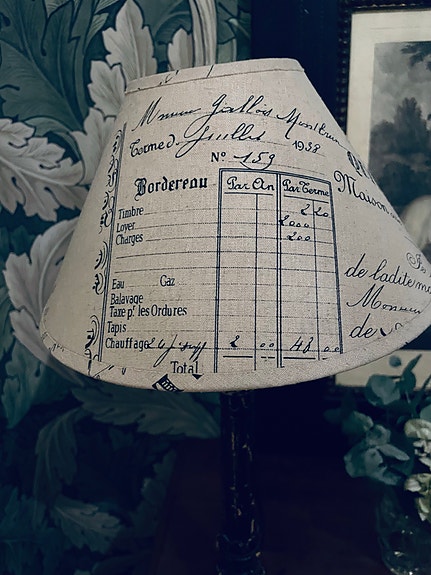 Gallois
Terme d Juillet 1938
N° 159
Maison
Bordereau Par An Par Terme
Timbre 2 20
Loyer 2000
Charges 200
de ladite
Eau Gaz
Balayage
Taxe pr. les Ordures
de
Tapis
Chauffage 2 00 48 00
Total